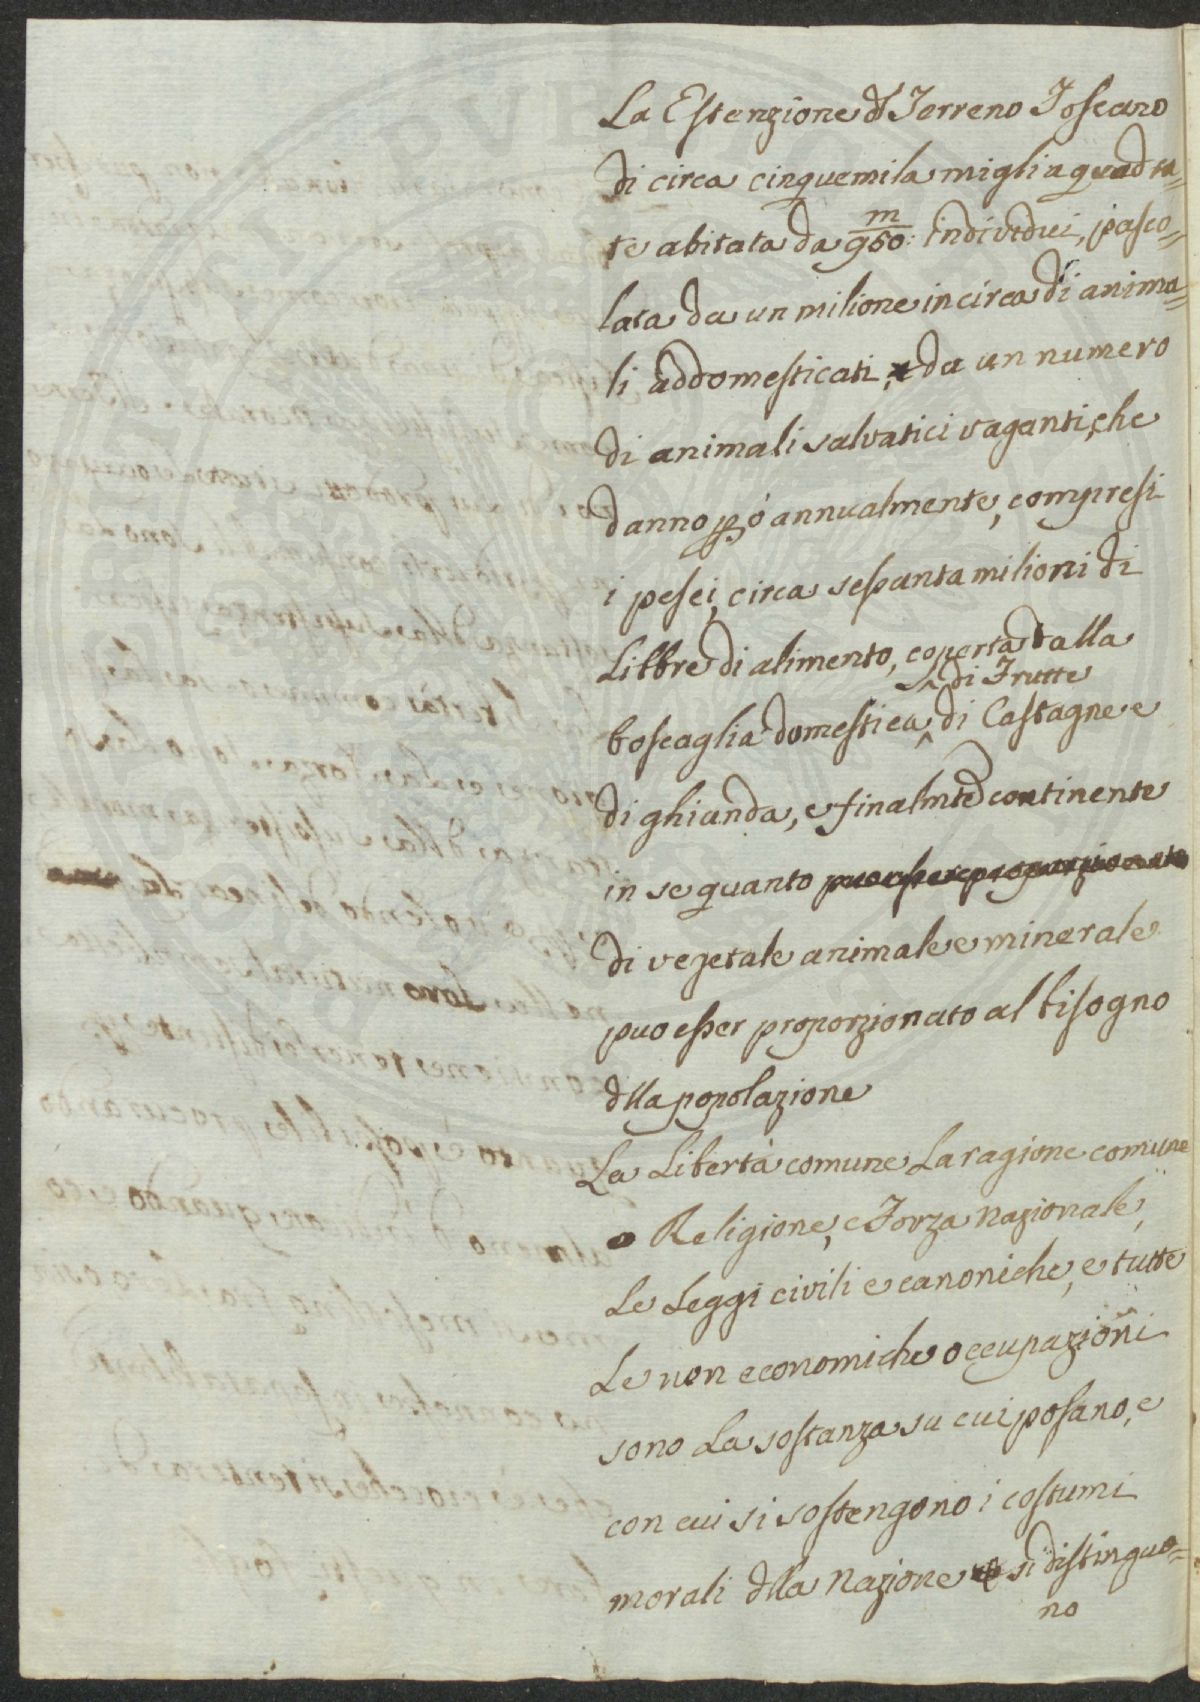 La Estenzione d Terreno Toscano
di circa cinquemila miglia quadra=
te abitata da 950:m individui, pasco=
lata da un milione incirca di anima=
li addomesticati, e da un numero
di animali salvatici vaganti, che
danno però annualmente, compresi
i pesci, circa sessanta milioni di
Libbre di alimento, coperta dalla
di Frutte
boscaglia domestica, di Castagne e
di ghianda, e finalmte continente
in se quanto puo esser proporzionato
di vegetale animale e minerale
puo esser proporzionato al bisogno
dlla popolazione
La Libertà comune La ragione comune
Religione, e Forza Nazionale,
Le Leggi civili e canoniche, e tutte
Le non economiche occupazioni
sono La sostanza su cui posano, e
con cui si sostengono i costumi
morali dlla Nazione si distinguo=
no